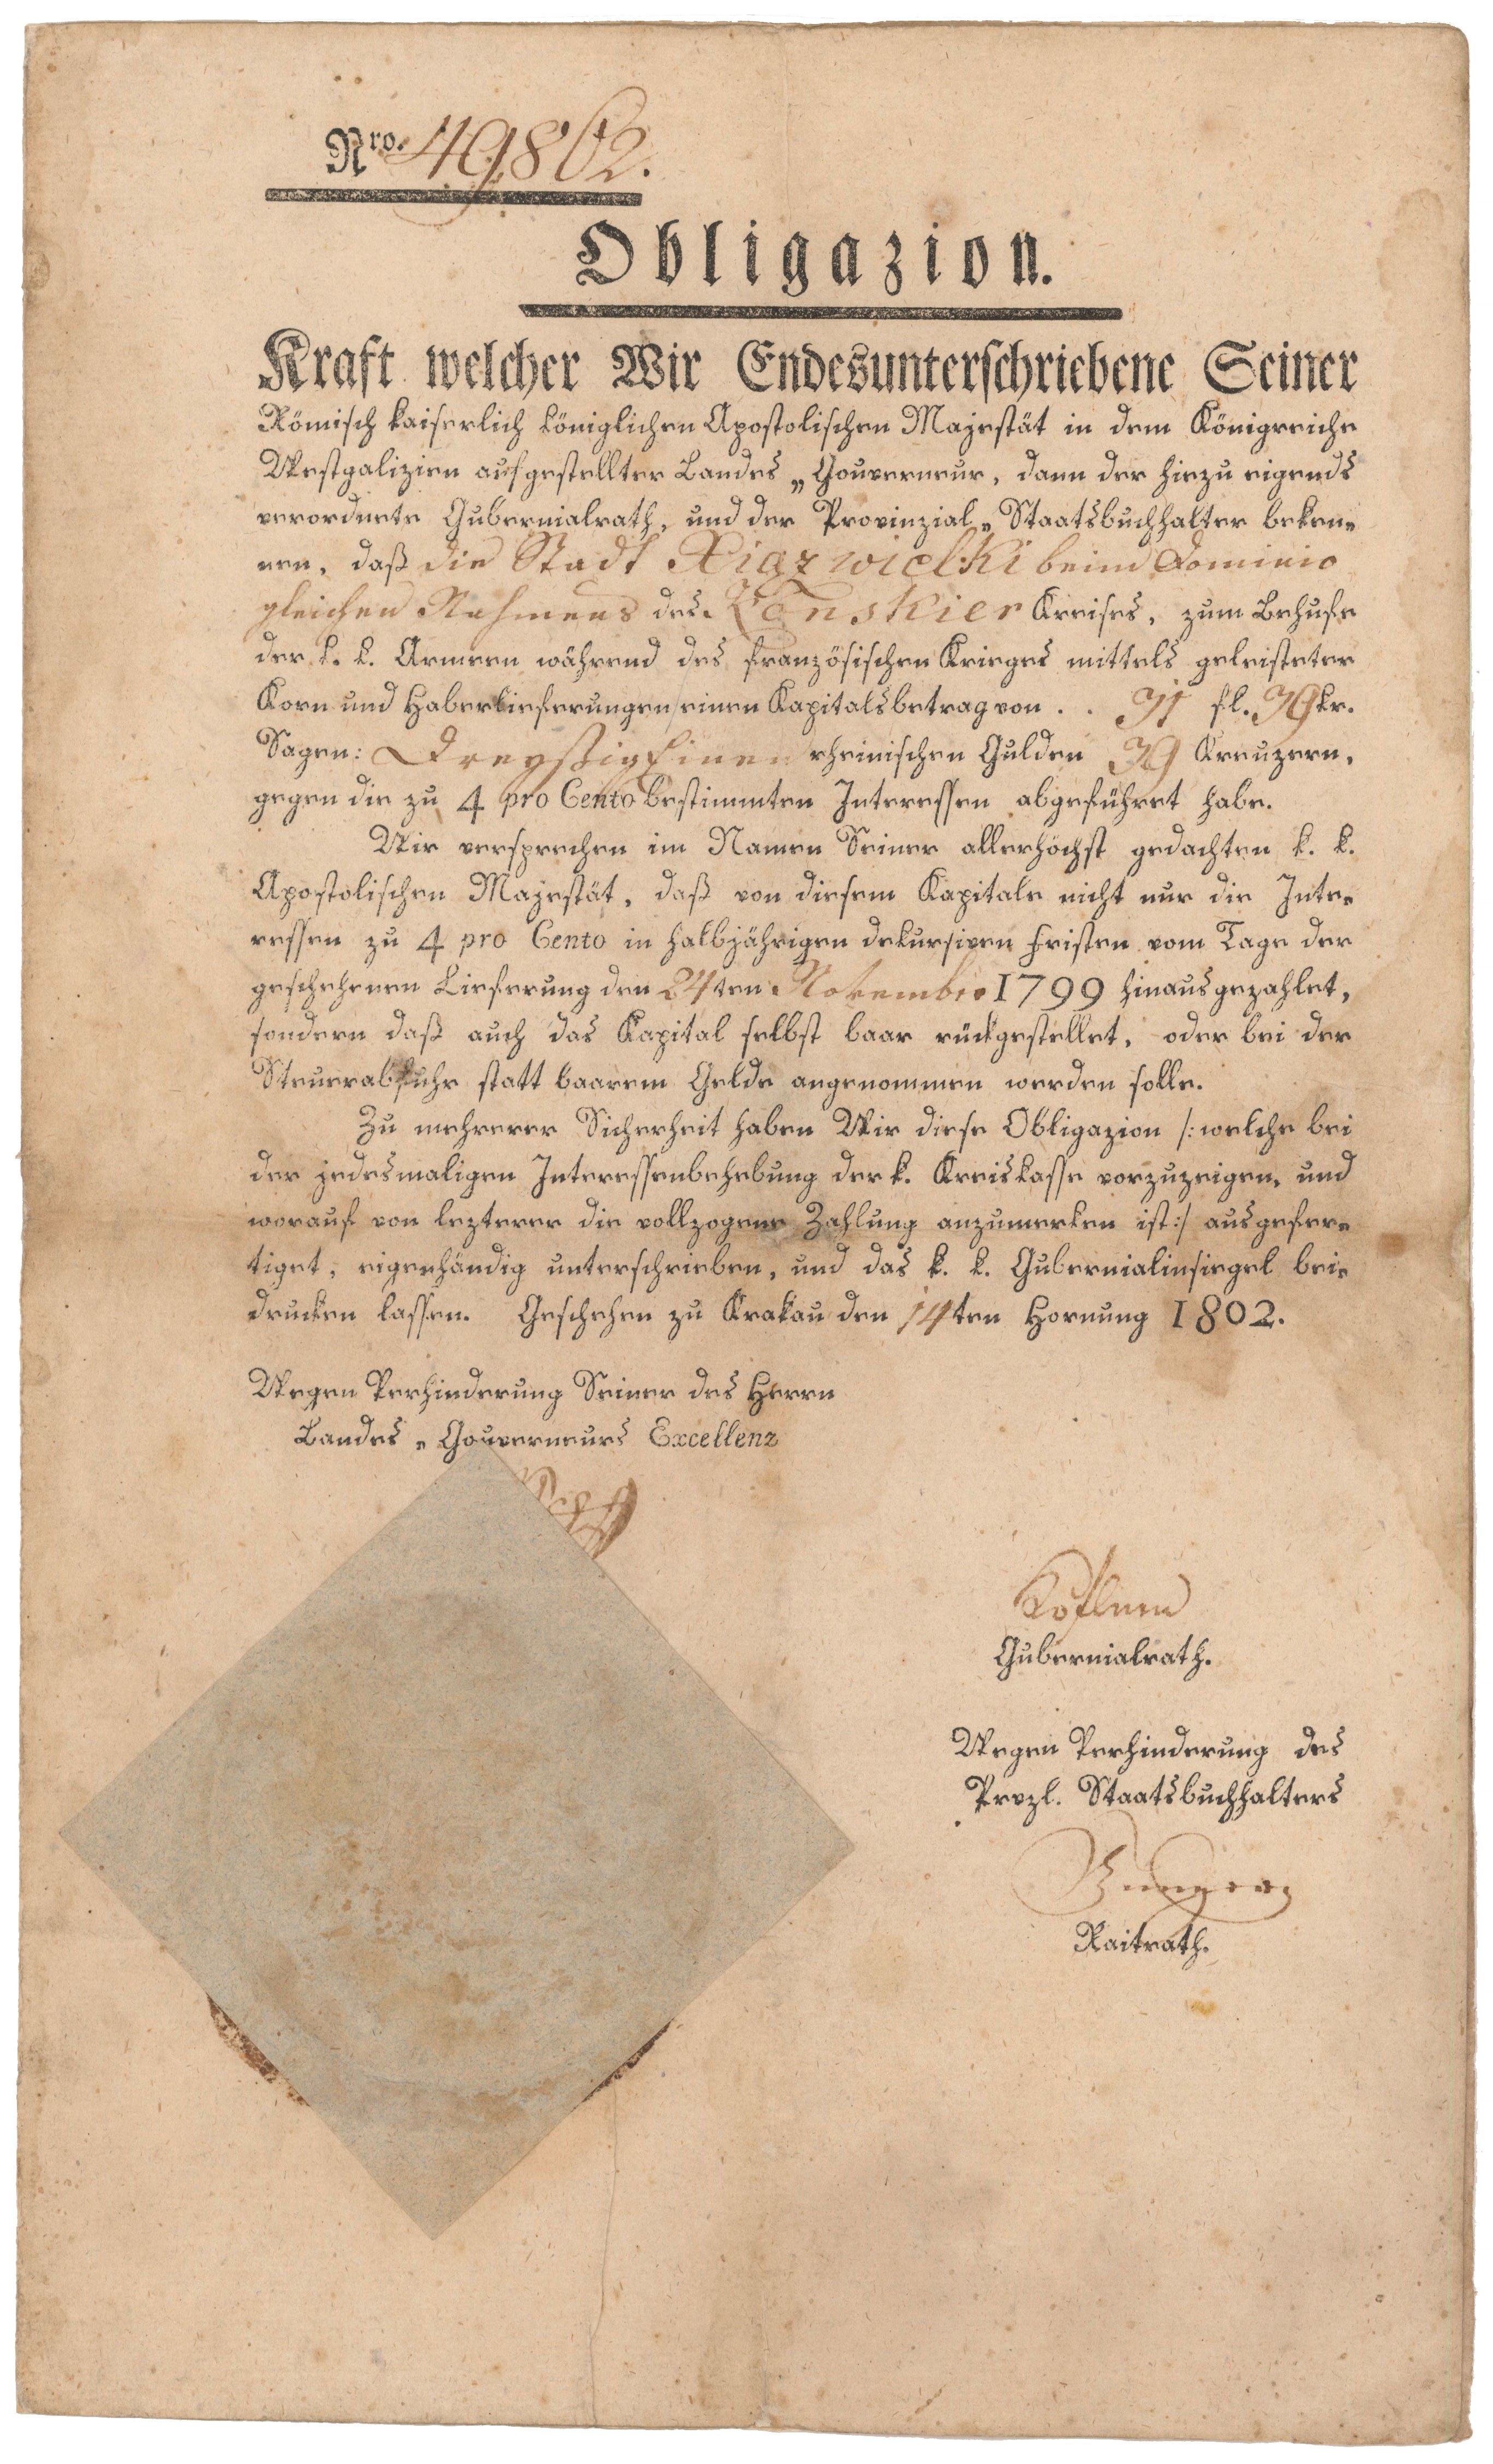 Nro. 49862.
Obligazion.
Kraft welcher Wir Endesunterschriebene Seiner
Römisch kaiserlich königlichen Apostolischen Majestät in dem Königreiche
Westgalizien aufgestellter Landes „Gouverneur, dann der hiezu eigends
verordnete Gubernialrath, und der Provinzial„Staatsbuchhalter beken„
nen, daß die Stadt Xiąz wielki beim Dominio
gleichen Nahmens des Konskier Kreises, zum Behufe
der k. k. Armeen während des französischen Krieges mittels geleisteter
Korn und Haberlieferungen einen Kapitalsbetrag von . . 31 fl. 39 kr.
Sagen: Dreyßig Einen rheinischen Gulden 39 Kreuzern,
gegen die zu 4 pro Cento bestimmten Interessen abgeführet habe.
Wir versprechen im Namen Seiner allerhöchst gedachten k. k.
Apostolischen Majestät, daß von diesem Kapitale nicht nur die Inte„
ressen zu 4 pro Cento in halbjährigen dekursiven Fristen vom Tage der
geschehenen Lieferung den 24ten November 1799 hinausgezahlet,
sondern daß auch das Kapital selbst baar rückgestellet, oder bei der
Steuerabfuhr statt baarem Gelde angenommen werden solle.
Zu mehrerer Sicherheit haben Wir diese Obligazion /: welche bei
der jedesmaligen Interessenbehebung der k. Kreiskasse vorzuzeigen, und
worauf von lezterer die vollzogene Zahlung anzumerken ist :/ ausgefer„
tiget, eigenhändig unterschrieben, und das k. k. Gubernialinsiegel bei„
drucken lassen. Geschehen zu Krakau den 14ten Hornung 1802.
Wegen Verhinderung Seiner des Herrn
Landes „ Gouverneurs Excellenz
Gubernialrath.
Wegen Verhinderung des
Prvzl. Staatsbuchhalters
Raitrath.